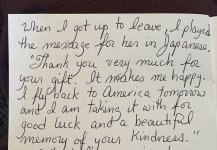 When I got up to leave, I played
the message for her in Japanese,
"Thank you very much for
your gift. It makes me happy.
I fly back to America tomorrow
and I am taking it with for
good luck and a beautiful
memory of your kindness."